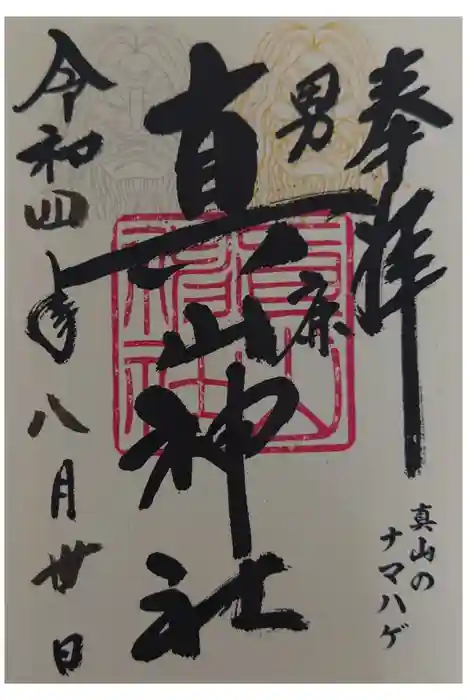 奉拝
真山の
ナマハゲ
男鹿
真山神社
真山
神社
令和四年八月丗日